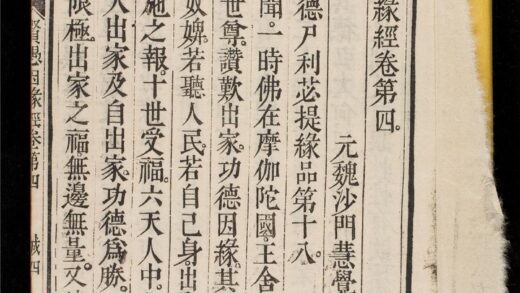 緣經卷第四。
元魏沙門慧覺
德尸利苾提緣品第十八。
聞。一時佛在摩伽陀國。王舍
世尊。讚歎出家。功德因緣。其
奴婢。若聽人民。若自己身。出
施之報。十世受福。六天人中。
人出家。及自出家。功德爲勝。
限極。出家之福。無邊無量。又
賢愚因緣經卷第四